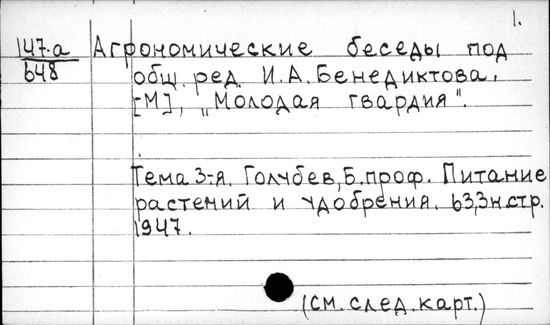 1.
147-а Агрономические беседы под
648 общ. ред. И.А. Бенедиктова.
[М], „Молодая гвардия".
Тема 3-я. Голубев, Б. проф. Питание
растений и удобрения. 63,3н.стр.
1947.
(см. след. карт.)